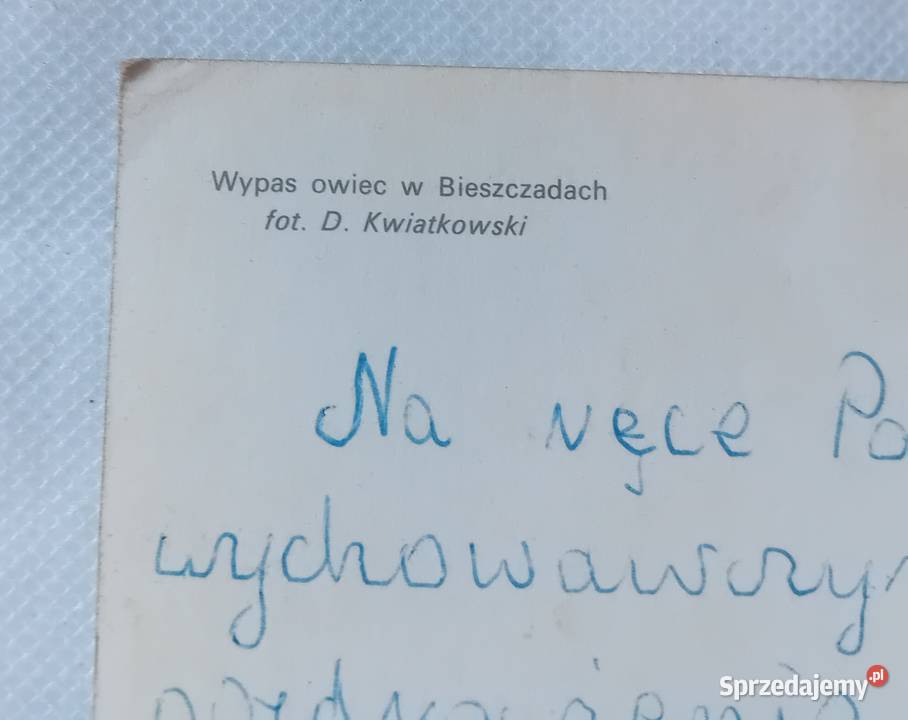 Wypas owiec w Bieszczadach
fot. D. Kwiatkowski
Na ręce Po
wychowawczyn
Sprzedajemy.pl